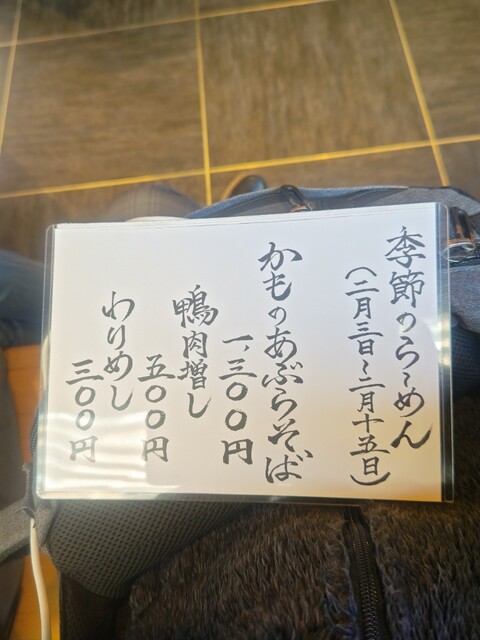 季節のらーめん
(二月三日〜二月十五日)
かものあぶらそば
一、三〇〇円
鴨肉増し
五〇〇円
わりめし
三〇〇円